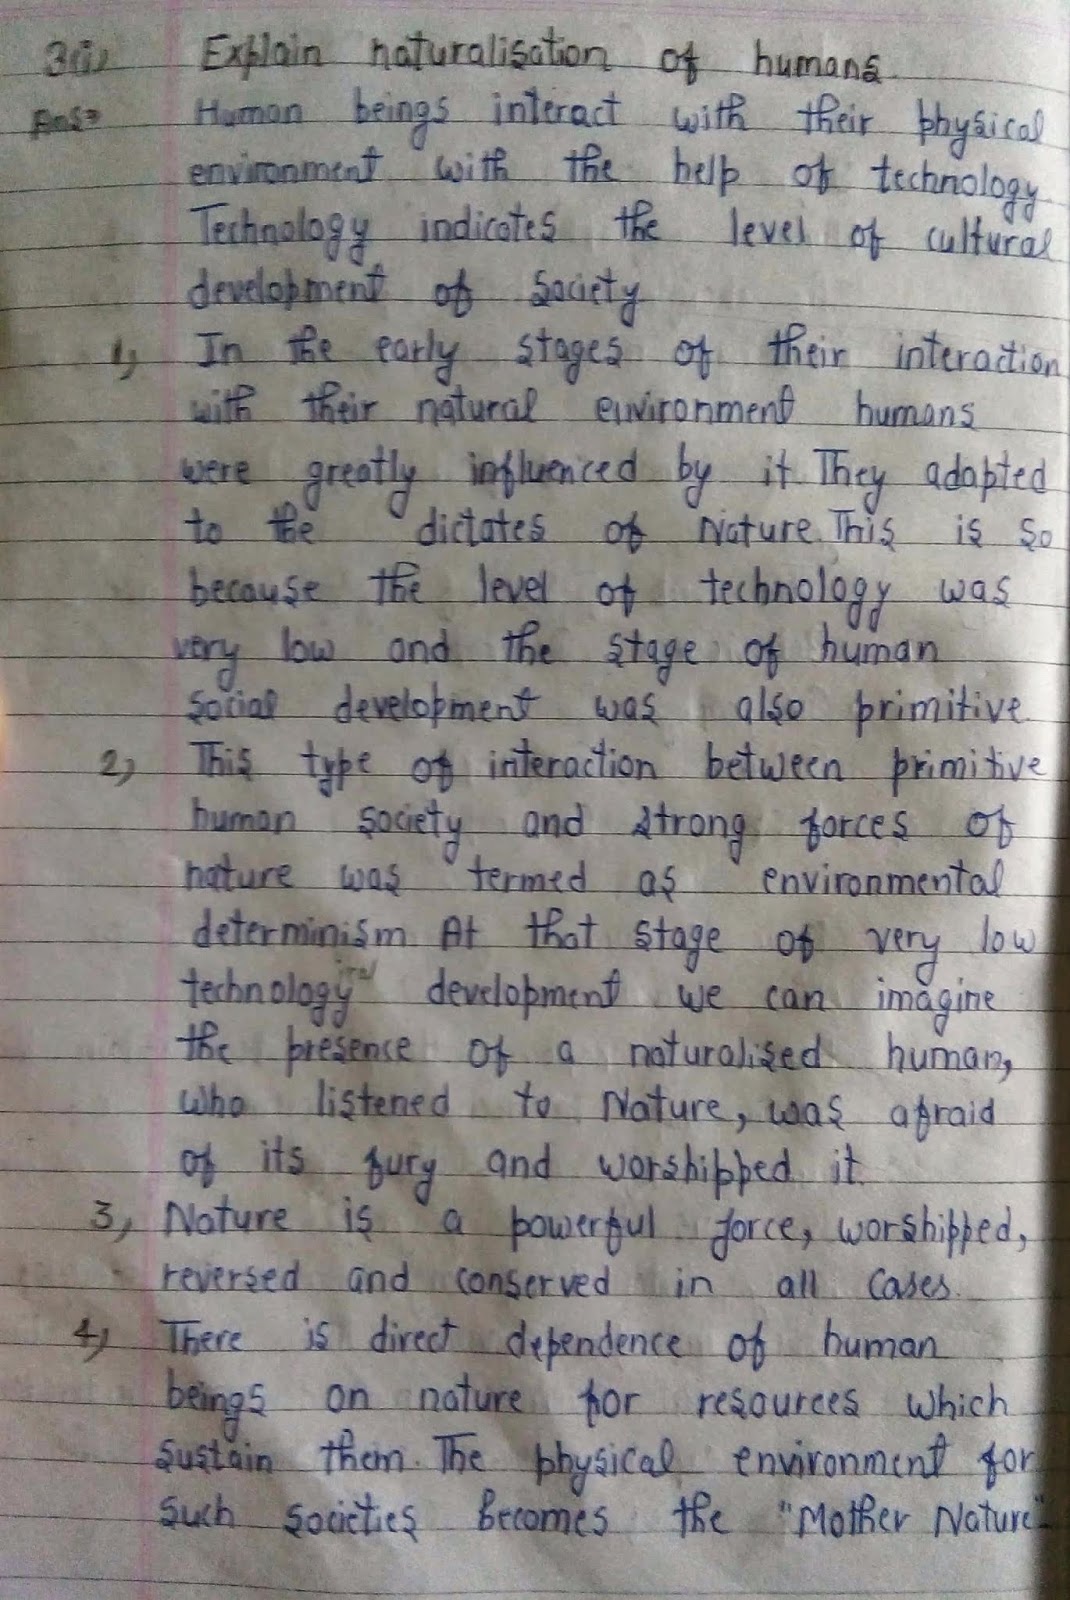 3(i) Explain naturalisation of humans
Ans> Human beings interact with their physical
environment with the help of technology
Technology indicates the level of cultural
development of society
1, In the early stages of their interaction
with their natural environment humans
were greatly influenced by it They adapted
to the dictates of Nature. This is so
because the level of technology was
very low and the stage of human
social development was also primitive.
2, This type of interaction between primitive
human society and strong forces of
nature was termed as environmental
determinism At that stage of very low
technology development we can imagine
the presence of a naturalised human,
who listened to Nature, was afraid
of its fury and worshipped it.
3, Nature is a powerful force, worshipped,
reversed and conserved in all cases.
4, There is direct dependence of human
beings on nature for resources which
sustain them. The physical environment for
such societies becomes the "Mother Nature"